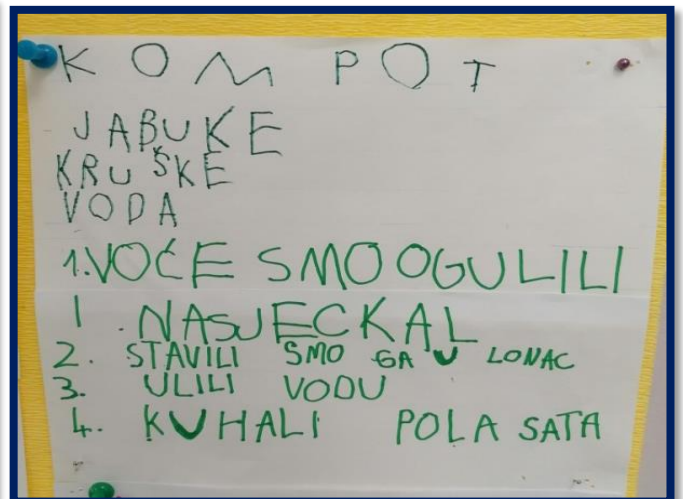 KOMPOT
JABUKE
KRUŠKE
VODA
1. VOĆE SMO OGULILI
I NASJECKAL
2. STAVILI SMO GA U LONAC
3. ULILI VODU
4. KUHALI POLA SATA